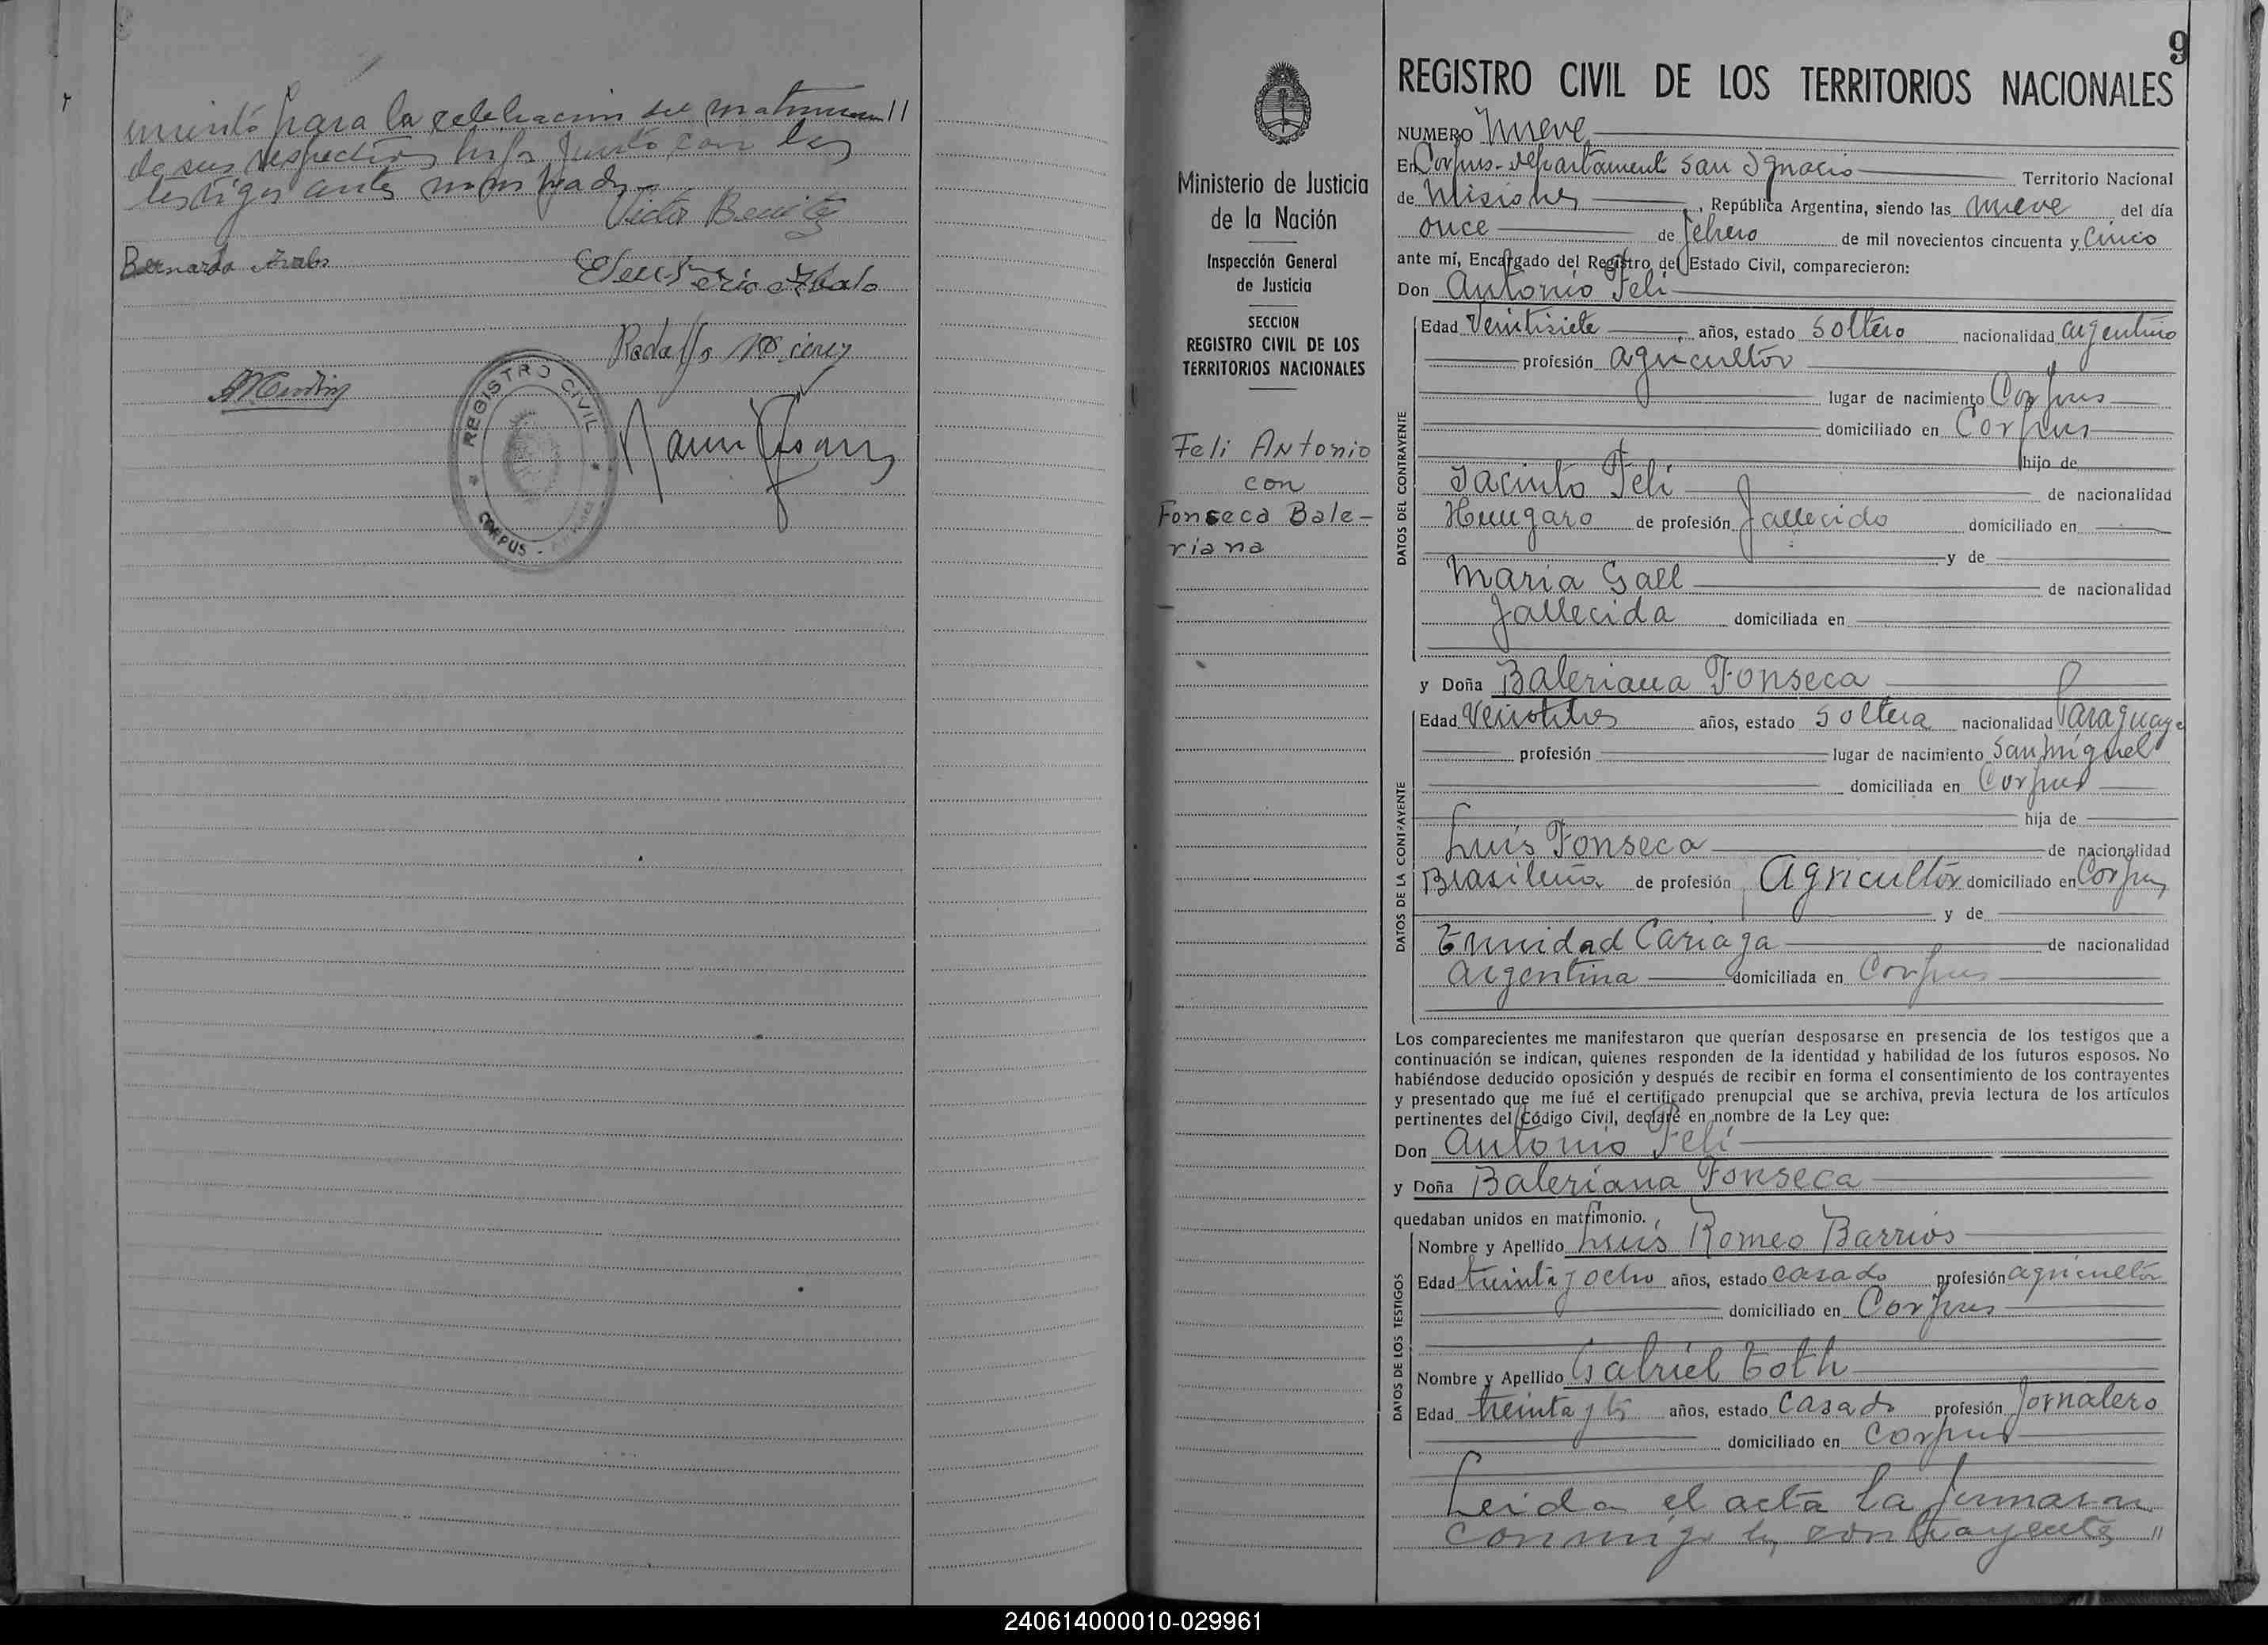 miento para la celebracion del matrimonio //
de sus respectivos hijos junto con los
testigos antes nombrados
Victor Benitez
Bernardo Avalos
Eleuterio Avalo
Rodolfo
REGISTRO CIVIL
CORPUS - MISIONES
9
Ministerio de Justicia
de la Nación
Inspección General
de Justicia
SECCION
REGISTRO CIVIL DE LOS
TERRITORIOS NACIONALES
Feli Antonio
con
Fonseca Bale-
riana
REGISTRO CIVIL DE LOS TERRITORIOS NACIONALES
NUMERO Nueve
En Corpus - departamento San Ignacio Territorio Nacional
de Misiones, República Argentina, siendo las nueve del día
once de febrero de mil novecientos cincuenta y cinco
ante mí, Encargado del Registro del Estado Civil, comparecieron:
Don Antonio Feli
DATOS DEL CONTRAYENTE
Edad Veintisiete años, estado Soltero nacionalidad argentino
profesión agricultor
lugar de nacimiento Corpus
domiciliado en Corpus
hijo de
Jacinto Feli de nacionalidad
Hungaro de profesión fallecido domiciliado en
y de
Maria Gall de nacionalidad
fallecida domiciliada en
y Doña Baleriana Fonseca
DATOS DE LA CONTRAYENTE
Edad años, estado Soltera nacionalidad Paraguaya
profesión lugar de nacimiento San Miguel
domiciliada en Corpus
hija de
Luis Fonseca de nacionalidad
Brasileña de profesión Agricultor domiciliado en Corpus
y de
Trinidad Cariaga de nacionalidad
argentina domiciliada en Corpus
Los comparecientes me manifestaron que querían desposarse en presencia de los testigos que a
continuación se indican, quienes responden de la identidad y habilidad de los futuros esposos. No
habiéndose deducido oposición y después de recibir en forma el consentimiento de los contrayentes
y presentado que me fué el certificado prenupcial que se archiva, previa lectura de los artículos
pertinentes del Código Civil, declaré en nombre de la Ley que:
Don Antonio Feli
y Doña Baleriana Fonseca
quedaban unidos en matrimonio.
DATOS DE LOS TESTIGOS
Nombre y Apellido Luis Romeo Barrios
Edad treinta y ocho años, estado casado profesión agricultor
domiciliado en Corpus
Nombre y Apellido Gabriel Toth
Edad treinta y años, estado Casado profesión Jornalero
domiciliado en Corpus
Leida el acta la firmaron
conmigo los contrayentes //
240614000010-029961